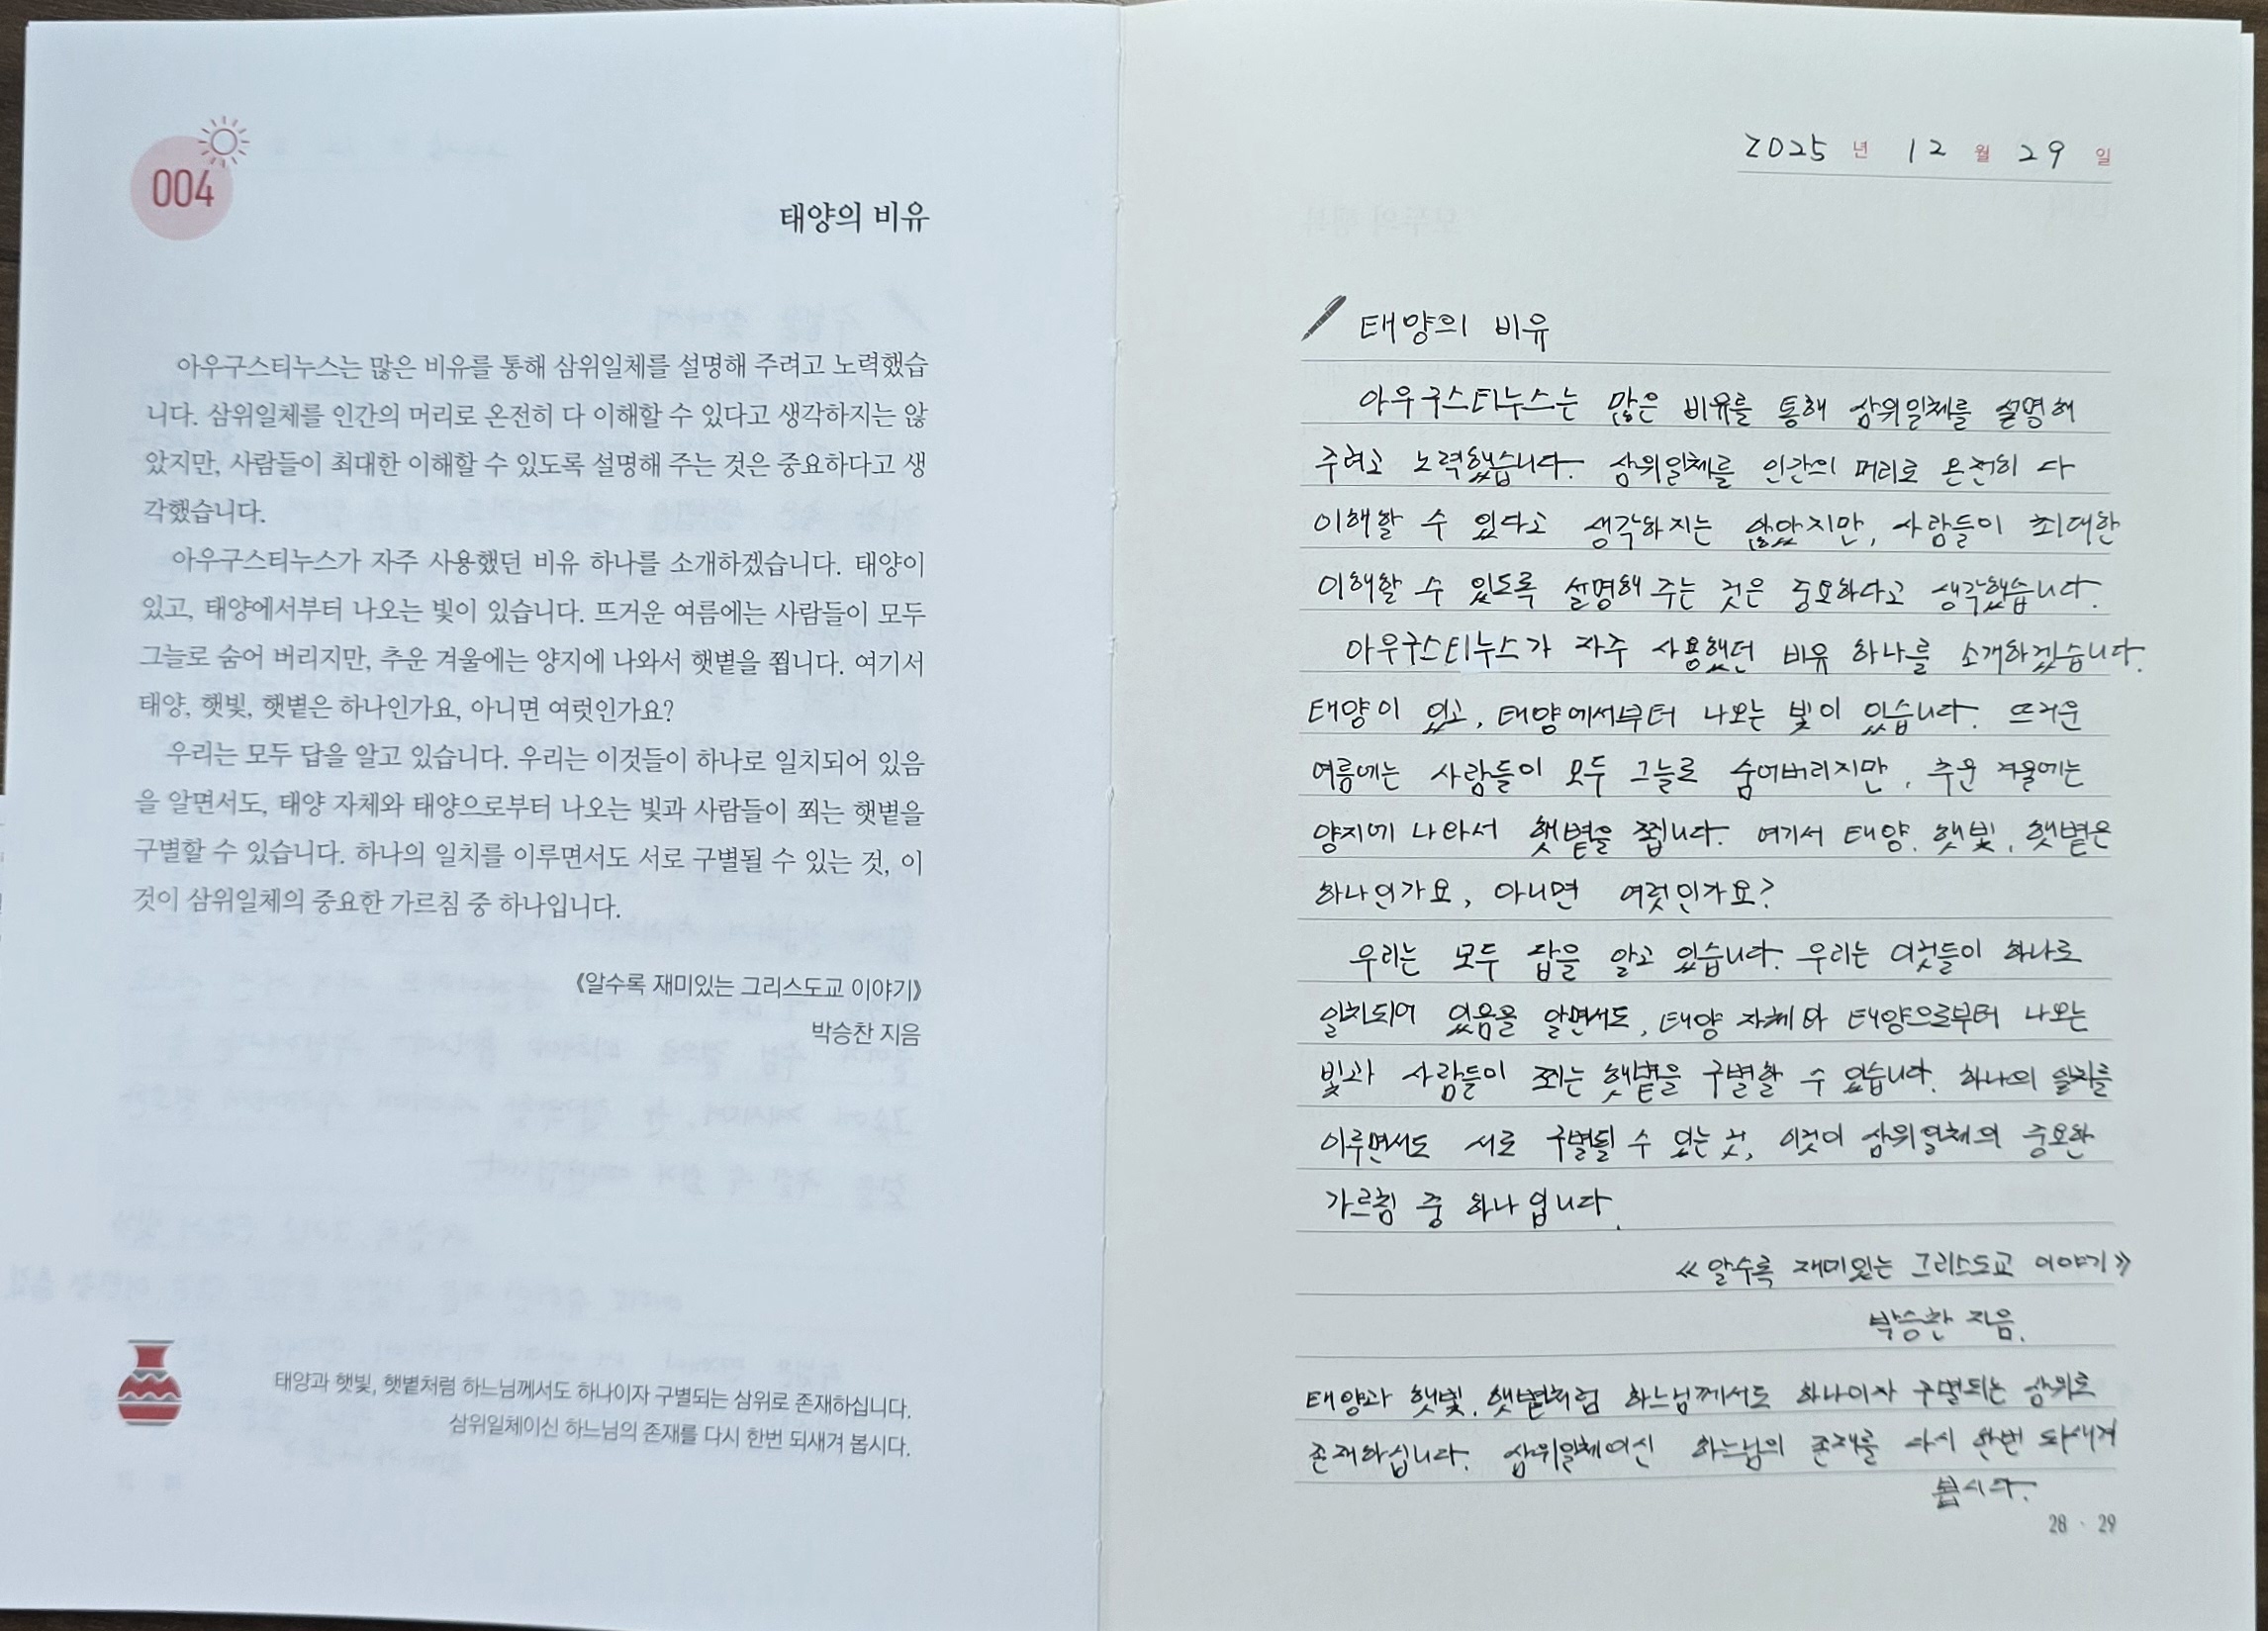 004
태양의 비유
아우구스티누스는 많은 비유를 통해 삼위일체를 설명해 주려고 노력했습
니다. 삼위일체를 인간의 머리로 온전히 다 이해할 수 있다고 생각하지는 않
았지만, 사람들이 최대한 이해할 수 있도록 설명해 주는 것은 중요하다고 생
각했습니다.
아우구스티누스가 자주 사용했던 비유 하나를 소개하겠습니다. 태양이
있고, 태양에서부터 나오는 빛이 있습니다. 뜨거운 여름에는 사람들이 모두
그늘로 숨어 버리지만, 추운 겨울에는 양지에 나와서 햇볕을 쬡니다. 여기서
태양, 햇빛, 햇볕은 하나인가요, 아니면 여럿인가요?
우리는 모두 답을 알고 있습니다. 우리는 이것들이 하나로 일치되어 있음
을 알면서도, 태양 자체와 태양으로부터 나오는 빛과 사람들이 쬐는 햇볕을
구별할 수 있습니다. 하나의 일치를 이루면서도 서로 구별될 수 있는 것, 이
것이 삼위일체의 중요한 가르침 중 하나입니다.
《알수록 재미있는 그리스도교 이야기》
박승찬 지음
태양과 햇빛, 햇볕처럼 하느님께서도 하나이자 구별되는 삼위로 존재하십니다.
삼위일체이신 하느님의 존재를 다시 한번 되새겨 봅시다.
2025 년 12 월 29 일
태양의 비유
아우구스티누스는 많은 비유를 통해 삼위일체를 설명해
주려고 노력했습니다. 삼위일체를 인간의 머리로 온전히 다
이해할 수 있다고 생각하지는 않았지만, 사람들이 최대한
이해할 수 있도록 설명해 주는 것은 중요하다고 생각했습니다.
아우구스티누스가 자주 사용했던 비유 하나를 소개하겠습니다.
태양이 있고, 태양에서부터 나오는 빛이 있습니다. 뜨거운
여름에는 사람들이 모두 그늘로 숨어버리지만, 추운 겨울에는
양지에 나와서 햇볕을 쬡니다. 여기서 태양, 햇빛, 햇볕은
하나인가요, 아니면 여럿인가요?
우리는 모두 답을 알고 있습니다. 우리는 이것들이 하나로
일치되어 있음을 알면서도, 태양 자체와 태양으로부터 나오는
빛과 사람들이 쬐는 햇볕을 구별할 수 있습니다. 하나의 일치를
이루면서도 서로 구별될 수 있는 것, 이것이 삼위일체의 중요한
가르침 중 하나입니다.
《알수록 재미있는 그리스도교 이야기》
박승찬 지음.
태양과 햇빛, 햇볕처럼 하느님께서도 하나이자 구별되는 삼위로
존재하십니다. 삼위일체이신 하느님의 존재를 다시 한번 되새겨
봅시다.
28 · 29